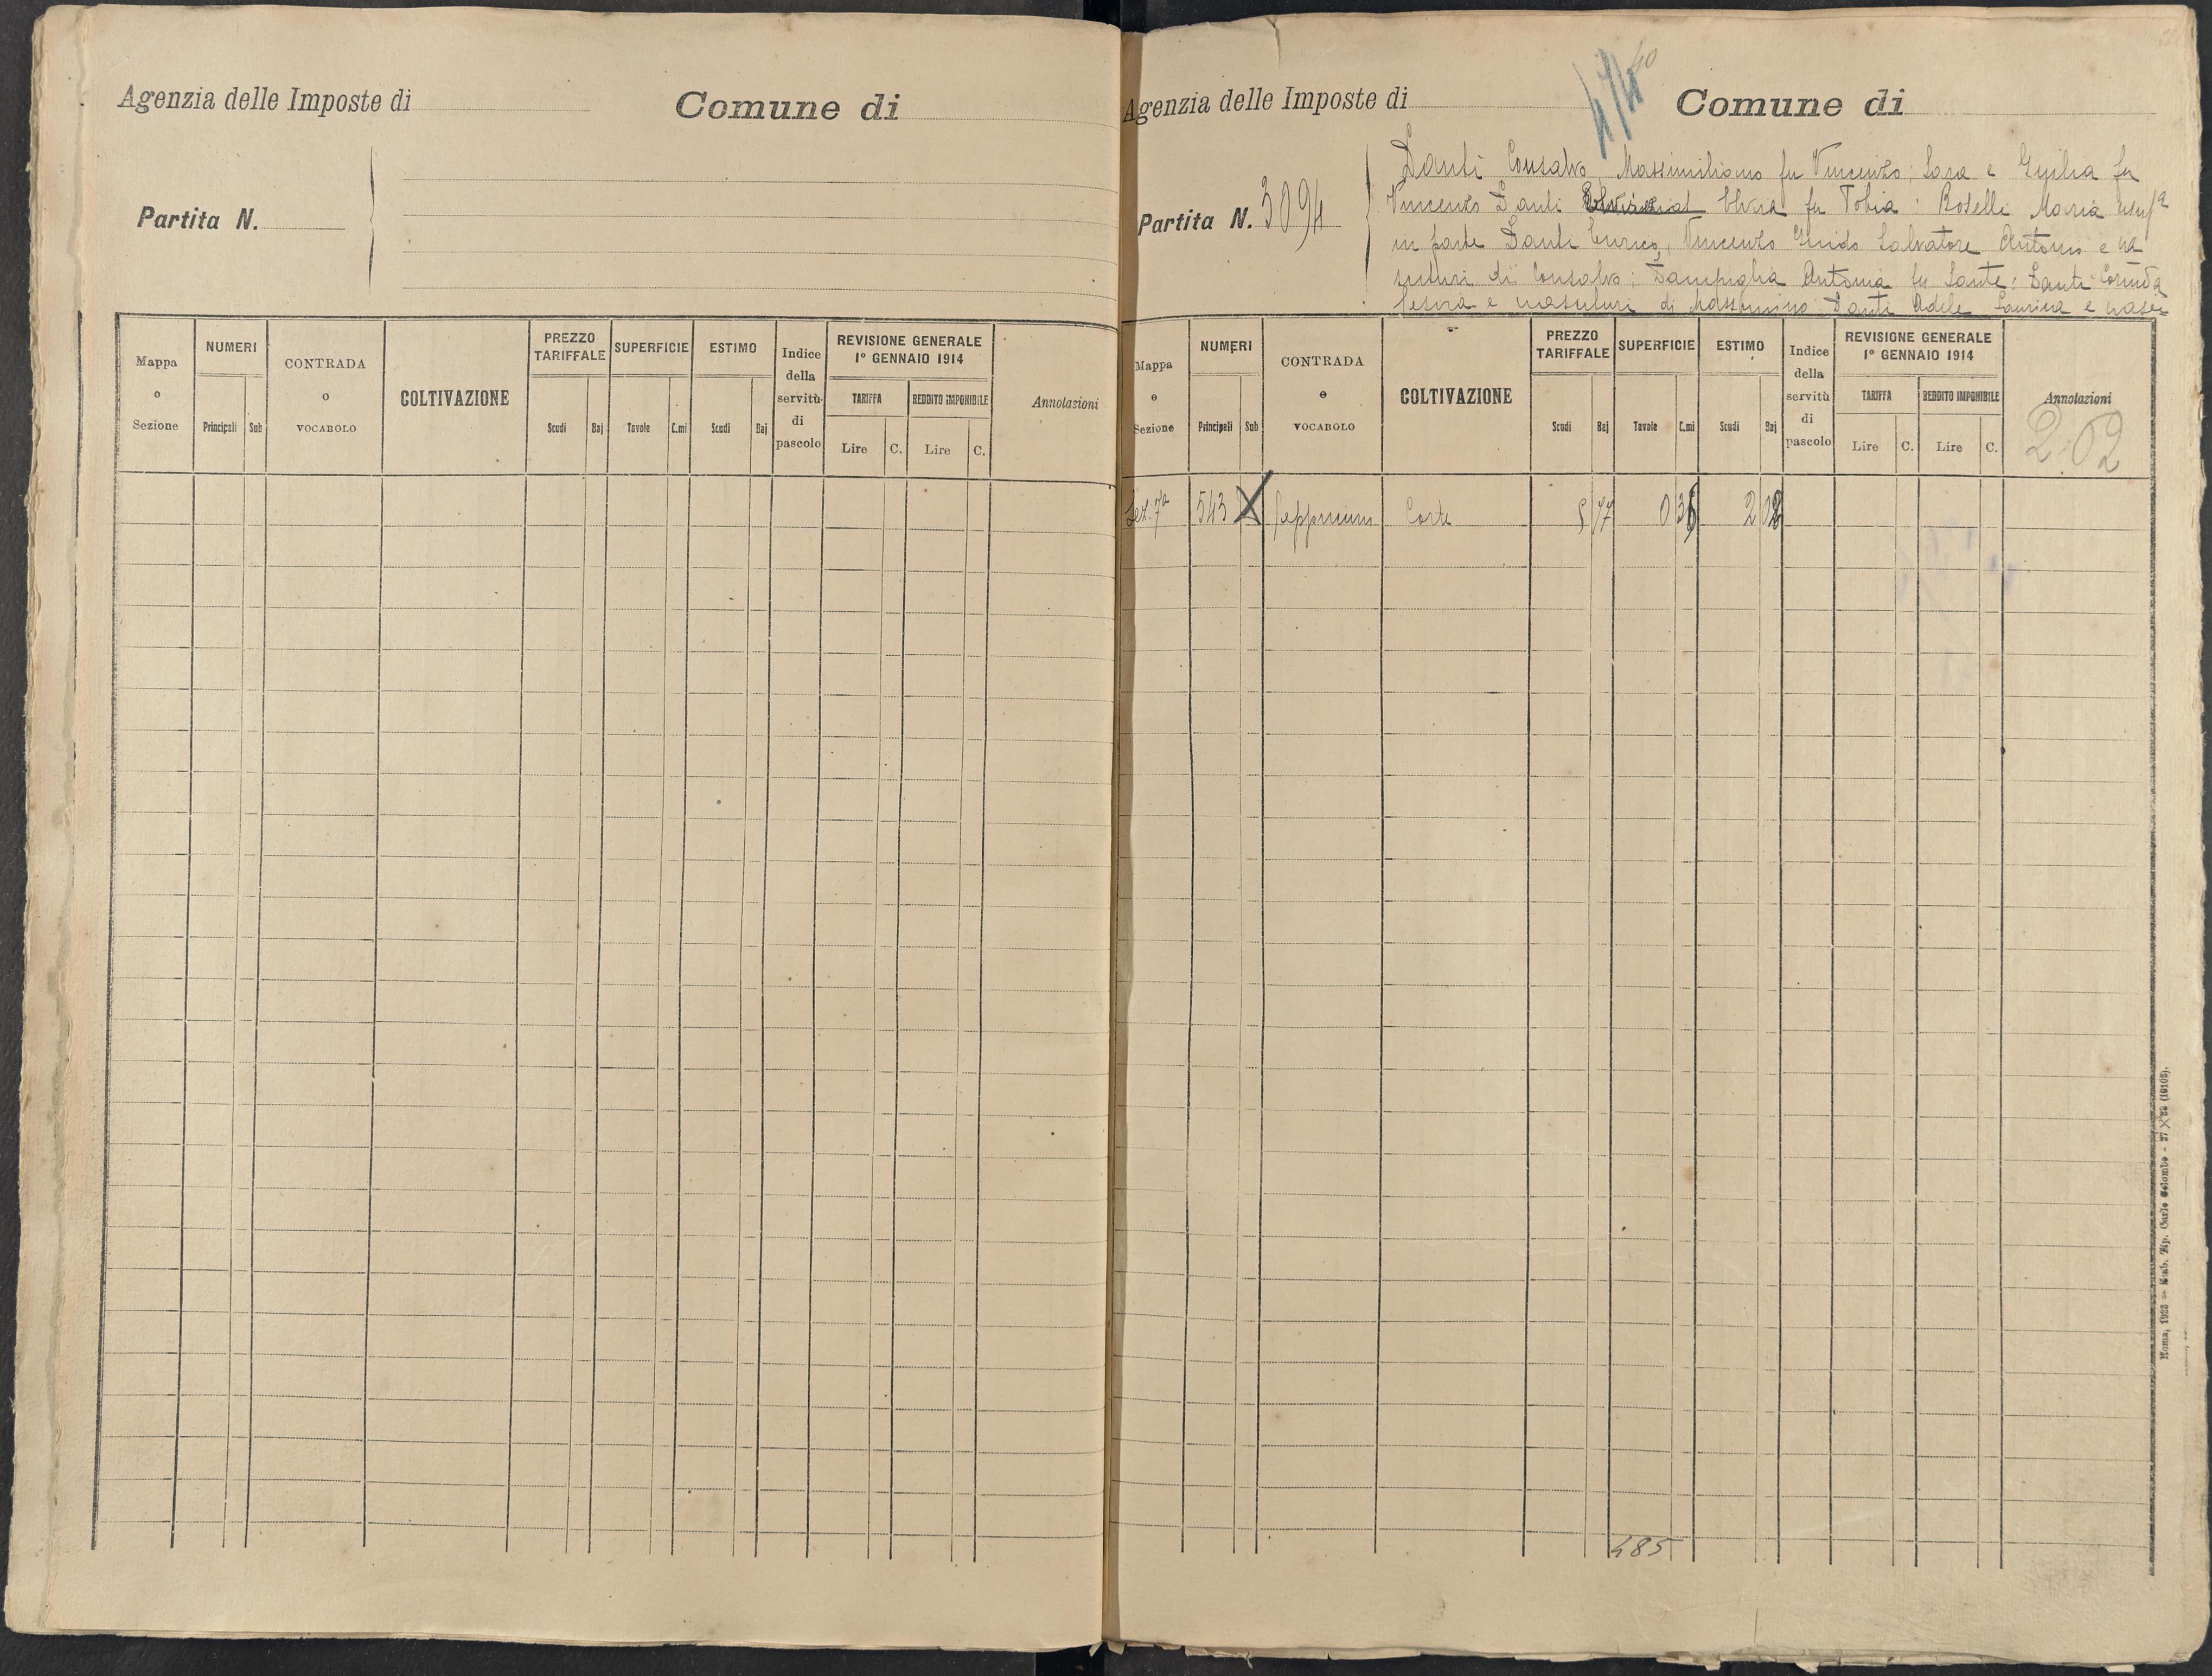 Agenzia delle Imposte di
Comune di
Partita N.
Mappa o Sezione
NUMERI
Principali
Sub
CONTRADA o VOCABOLO
COLTIVAZIONE
PREZZO TARIFFALE
Scudi
Baj
SUPERFICIE
Tavole
C.mi
ESTIMO
Scudi
Baj
Indice della servitù di pascolo
REVISIONE GENERALE
1° GENNAIO 1914
TARIFFA
Lire
C.
REDDITO IMPONIBILE
Lire
C.
Annotazioni
40
Agenzia delle Imposte di
Comune di
Partita N. 3094
Danti Consalvo, Massimiliano fu Vincenzo; Sara e Giulia fu
Vincenzo Danti Elvira fu Tobia: Roselli Maria usuf.a
in parte Danti Enrico, Vincenzo Guido Salvatore Antonio e na
scituri di Consalvo; Antonia fu Sante: Danti Corinda
e nascituri di Massimino Danti Adele Laurina e
Mappa o Sezione
NUMERI
Principali
Sub
CONTRADA o VOCABOLO
COLTIVAZIONE
PREZZO TARIFFALE
Scudi
Baj
SUPERFICIE
Tavole
C.mi
ESTIMO
Scudi
Baj
Indice della servitù di pascolo
REVISIONE GENERALE
1° GENNAIO 1914
TARIFFA
Lire
C.
REDDITO IMPONIBILE
Lire
C.
Annotazioni
2.02
Sez. 7a 543 Corte 5 77 0 36 2 02
485
Roma, 1923 — Stab. Tip. Carlo Colombo